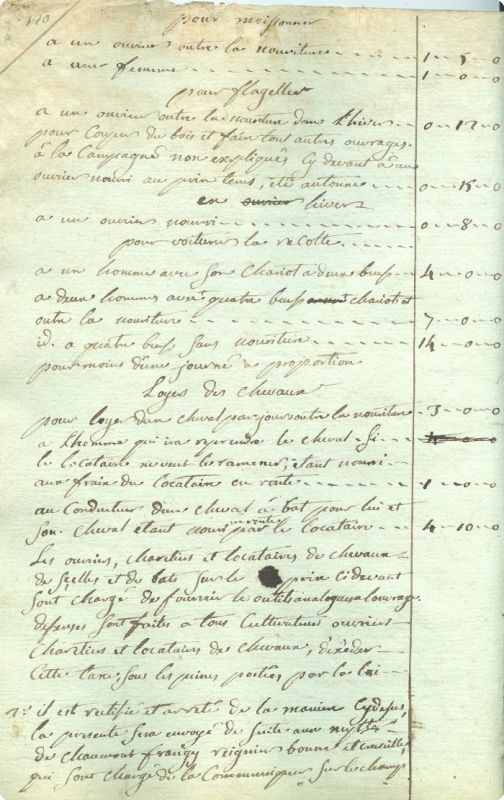 120 pour moissonner
a un ouvrier outre la nourriture 1 - 5 - 0
a une femme 1 - 0 - 0
pour flageller
a un ouvrier outre la nouriture dans l'hiver 0 - 12 - 0
pour Couper du bois et faire tous autres ouvrages
à la Campagne non expliqués Cy devant à un
ouvrier nourri au printems, été autonne 0 - 15 - 0
en ouvrier hiver
a un ouvrier nourri 0 - 8 - 0
pour voiturer la recolte
a un homme avec son Chariot à deux beufs 4 - 0 - 0
a deux hommes avec quatre beufs chariot et
outre la nouriture 7 - 0 - 0
id. a quatre beufs sans nouriture 14 - 0 - 0
pour moins d'une journé à proportion
Loyer des chevaux
pour loyer d'un cheval par jour outre la nouriture 3 - 0 - 0
a l'homme qui ira reprendre le cheval si
le locataire ne veut le ramener, etant nourri
aux frais du locataire en route 1 - 0 - 0
au Conducteur d'un cheval à bat pour lui et
son cheval etant nourri en route par le locataire 4 - 10 - 0
Les ouvriers, charetiers et locataires de chevaux
de selles et de bats sur le prix ci devant
sont chargé de fournir les outils analogues a l'ouvrage
defenses sont faites à tous Cultivateurs ouvriers
Charetiers et locataires de chevaux, d'exceder
Cette taxe, sous les peines portées par la loi
il est rectifié et arreté de la maniere Cy dessus
la presente sera envoyé de suite aux
de Chaumont frangy reignier bonne et
qui sont chargé de la Communiquer sur le champ